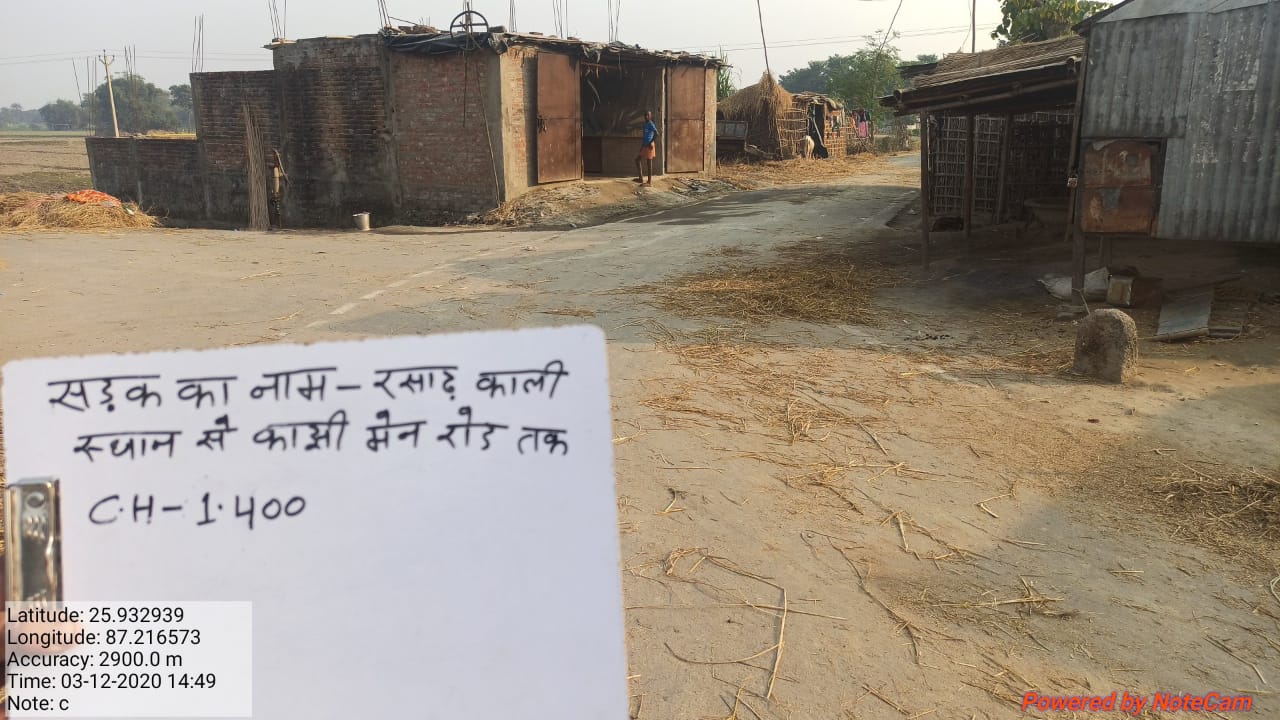 सड़क का नाम - रसाढ़ काली
स्थान से काझी मेन रोड तक
C.H - 1.400
Latitude: 25.932939
Longitude: 87.216573
Accuracy: 2900.0 m
Time: 03-12-2020 14:49
Note: c
Powered by NoteCam